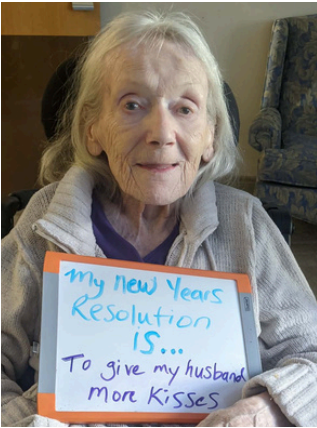 My New Years
Resolution
IS...
To give my husband
More Kisses